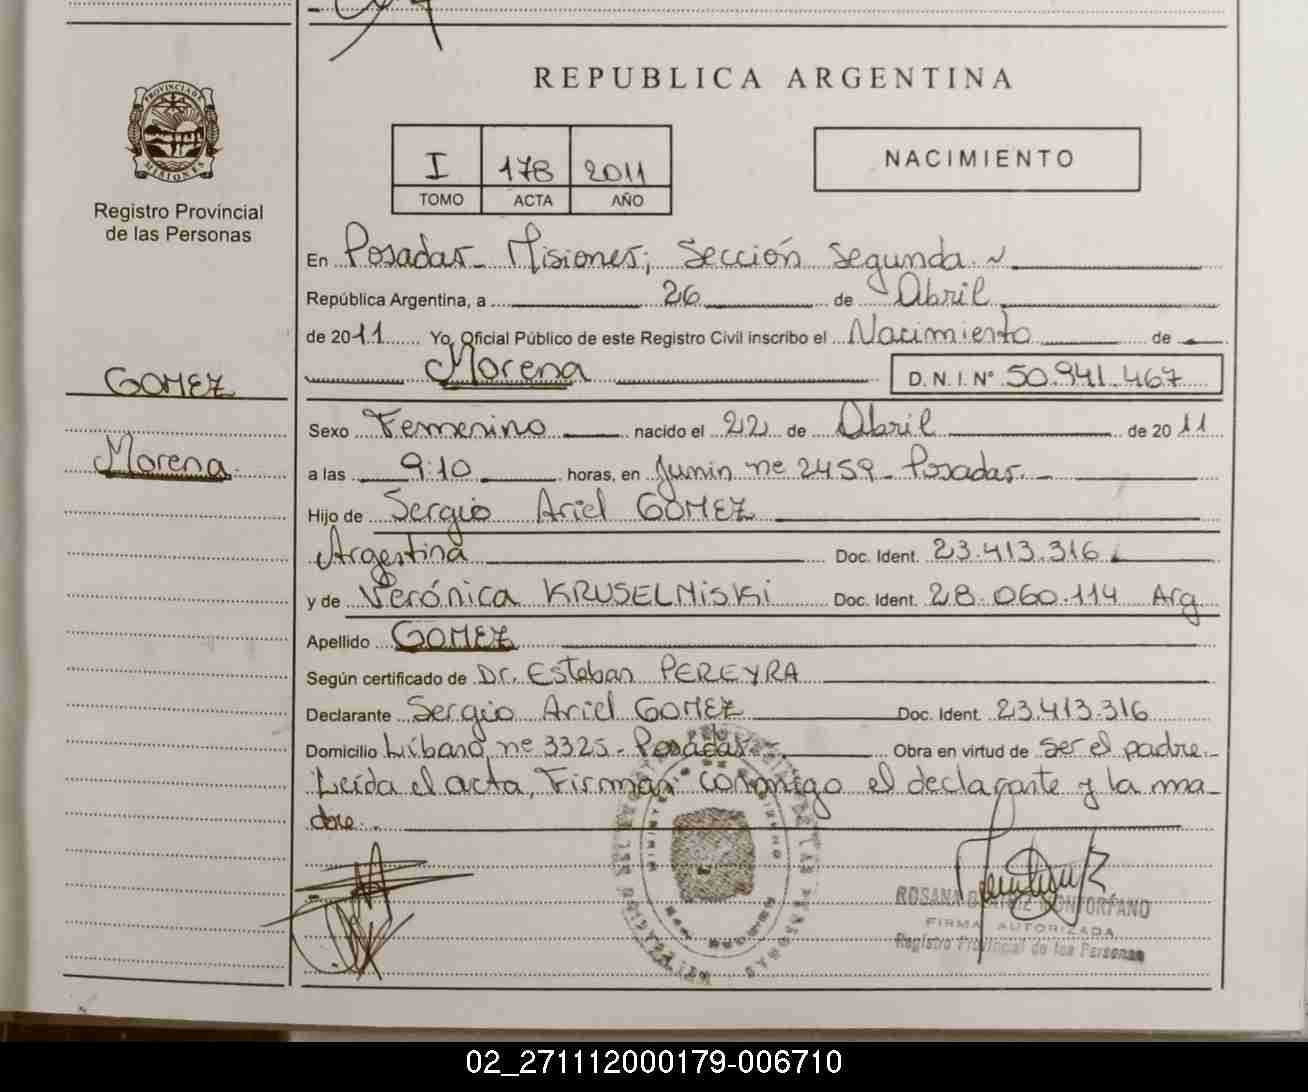 REPUBLICA ARGENTINA
PROVINCIA DE MISIONES
Registro Provincial
de las Personas
I 178 2011
TOMO ACTA AÑO
NACIMIENTO
En Posadas - Misiones; Sección Segunda. ~
República Argentina, a 26 de Abril
de 2011 Yo, Oficial Público de este Registro Civil inscribo el Nacimiento de
Morena D.N.I. Nº 50.941.467
GOMEZ
Morena
Sexo Femenino nacido el 22 de Abril de 2011
a las 9:10 horas, en Junin nº 2459 - Posadas.
Hijo de Sergio Ariel GOMEZ
Argentina Doc. Ident. 23.413.316
y de Verónica KRUSELNISKI Doc. Ident. 28.060.114 Arg
Apellido GOMEZ
Según certificado de Dr. Esteban PEREYRA
Declarante Sergio Ariel GOMEZ Doc. Ident. 23.413.316
Domicilio Líbano nº 3325 - Posadas - Obra en virtud de ser el padre.-
Leída el acta, Firman conmigo el declarante y la ma-
dre.
ROSANA BEATRIZ MONFORFANO
FIRMA AUTORIZADA
Registro Provincial de las Personas
02_271112000179-006710